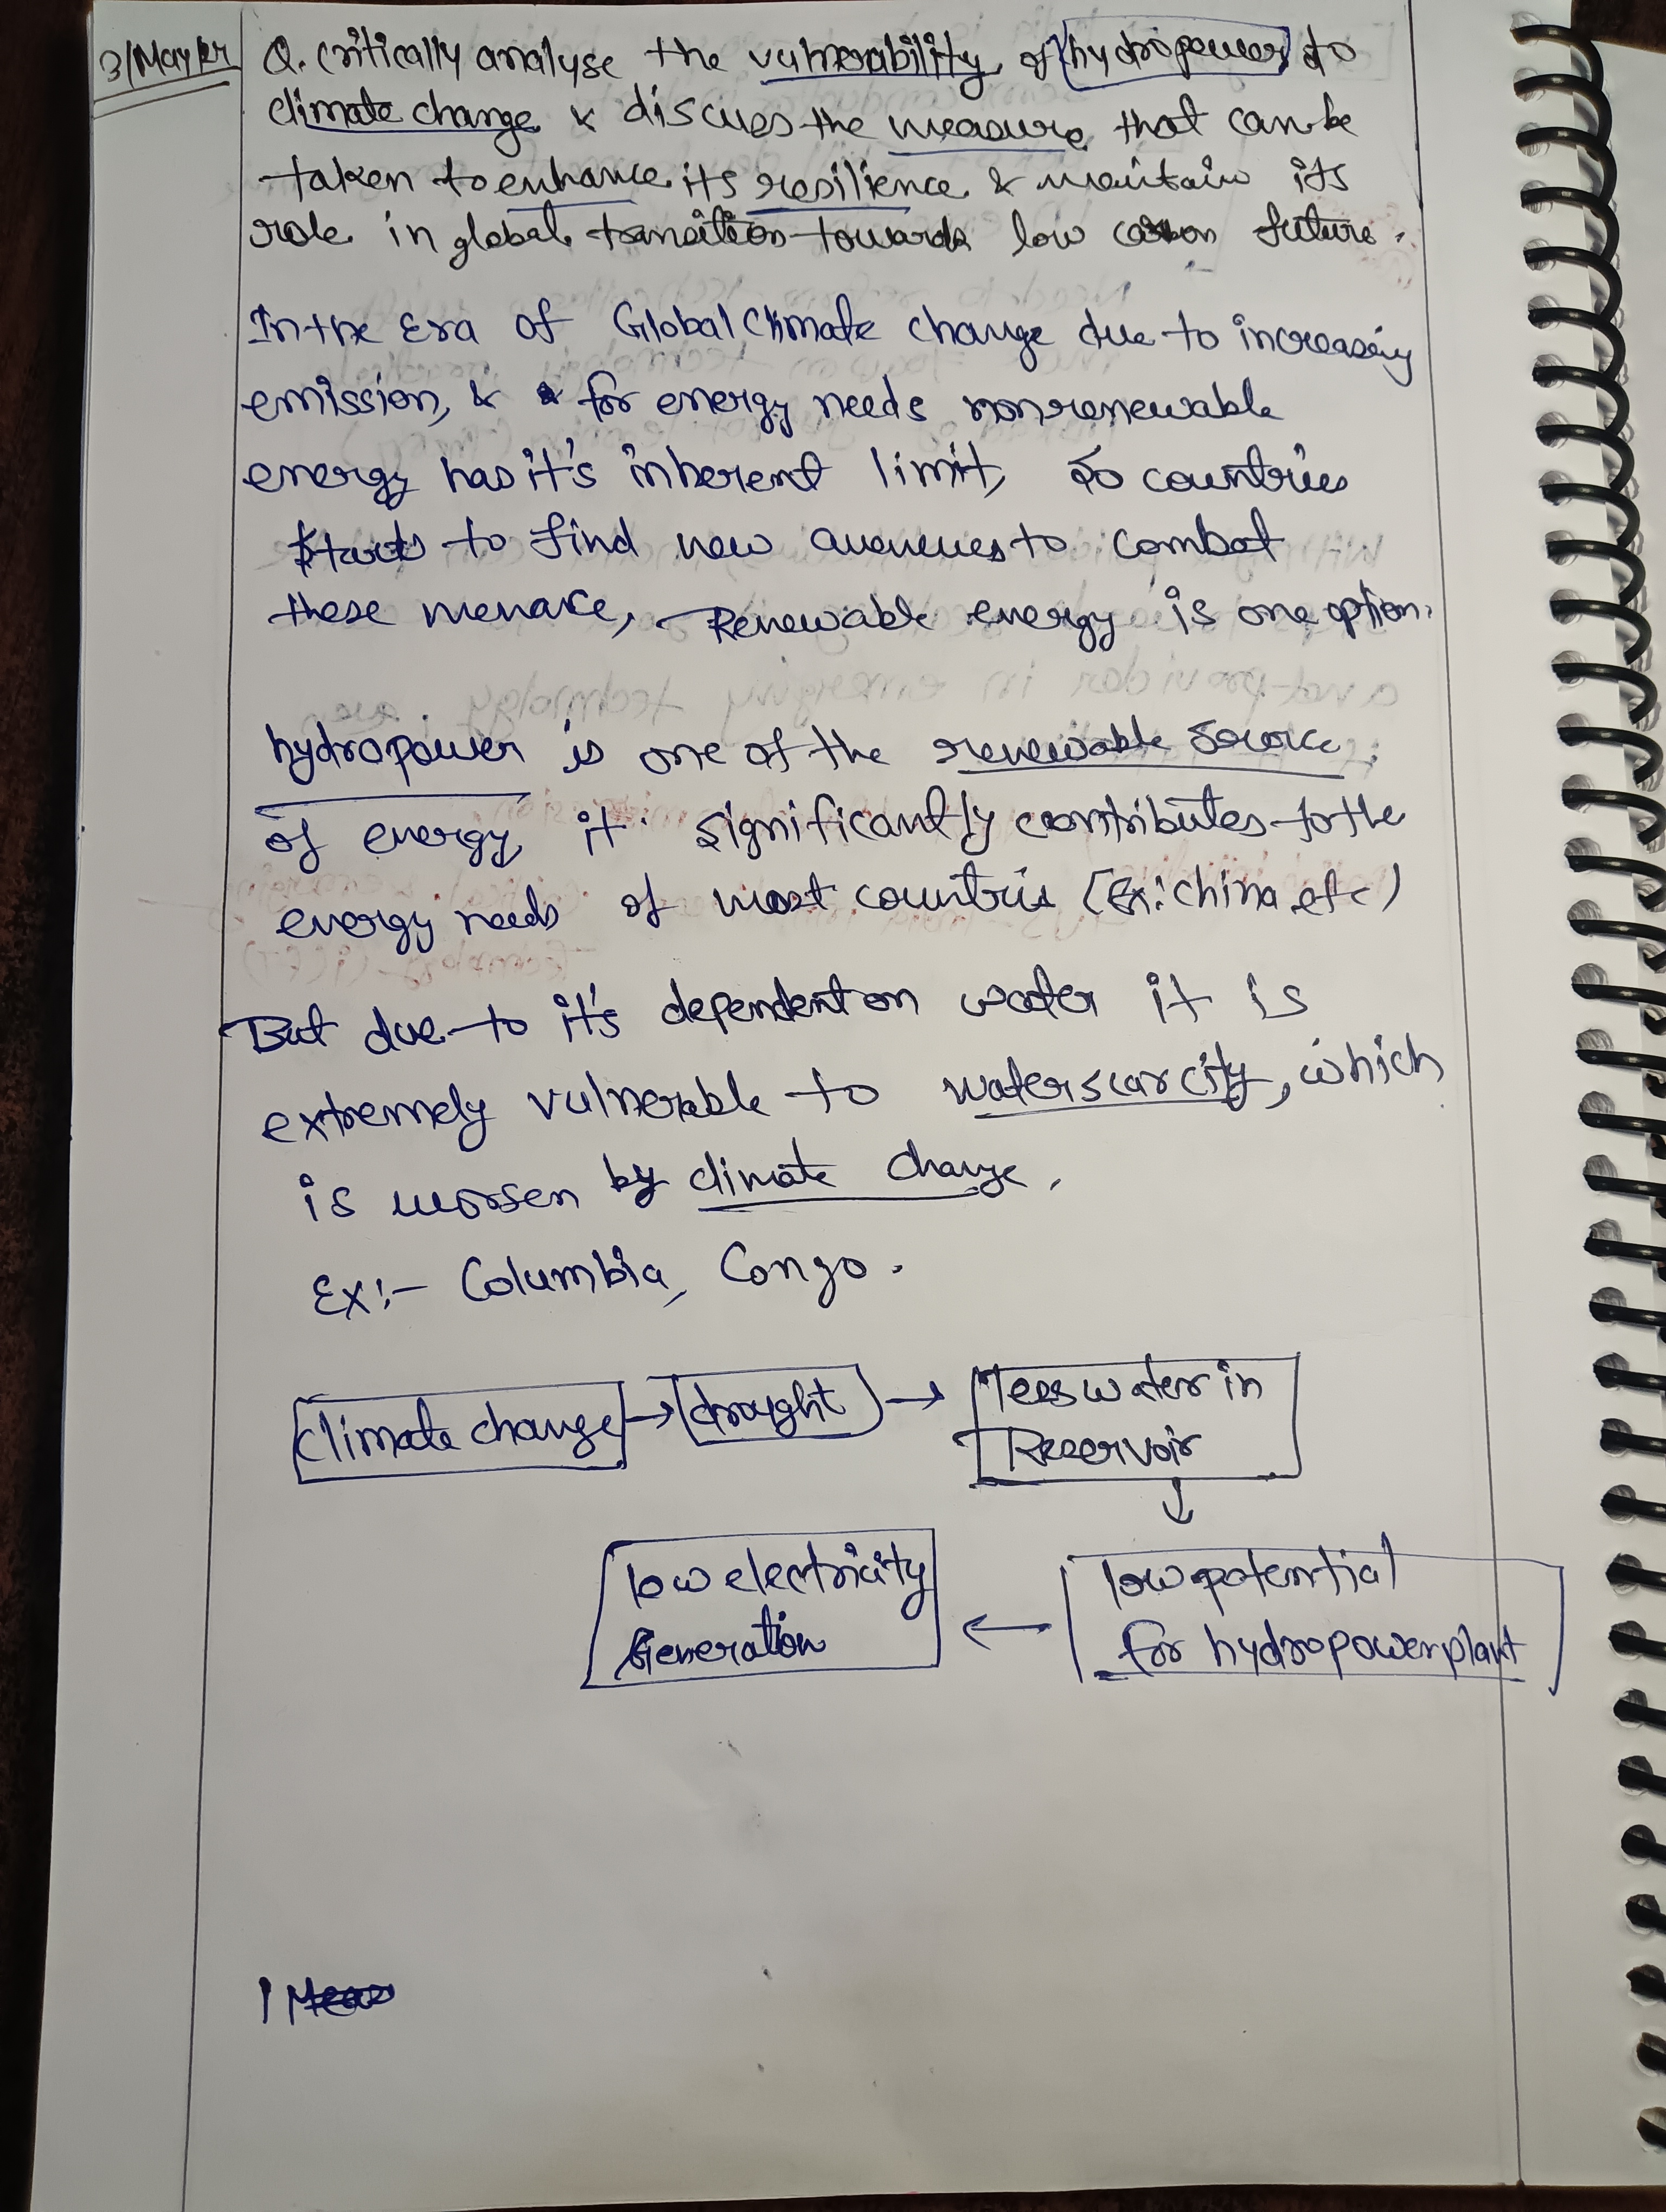 3/May/24
Q. Critically analyse the vulnerability of hydropower to
climate change & discuss the measure that can be
taken to enhance its resilience & maintain its
role in global transition towards low carbon future.
In the Era of Global Climate change due to increasing
emission, & for energy needs nonrenewable
energy has it's inherent limit, so countries
starts to find new avenues to combat
these menace, Renewable energy is one option.
hydropower is one of the renewable source
of energy, it significantly contributes to the
energy needs of most countries (Ex: China etc)
But due to it's dependent on water it is
extremely vulnerable to water scarcity, which
is worsen by climate change.
Ex:- Columbia, Congo.
climate change → drought → less water in
Reservoir
↓
low electricity ← low potential
Generation for hydropowerplant